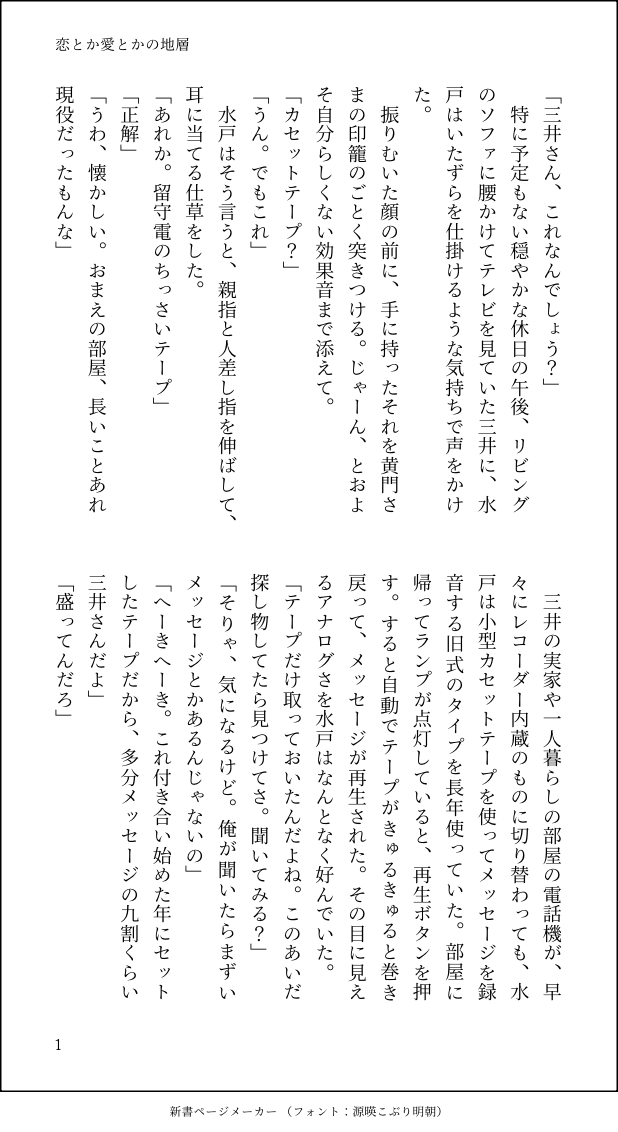 恋とか愛とかの地層
「三井さん、これなんでしょう？」
　特に予定もない穏やかな休日の午後、リビング
のソファに腰かけてテレビを見ていた三井に、水
戸はいたずらを仕掛けるような気持ちで声をかけ
た。
　振りむいた顔の前に、手に持ったそれを黄門さ
まの印籠のごとく突きつける。じゃーん、とおよ
そ自分らしくない効果音まで添えて。
「カセットテープ？」
「うん。でもこれ」
　水戸はそう言うと、親指と人差し指を伸ばして、
耳に当てる仕草をした。
「あれか。留守電のちっさいテープ」
「正解」
「うわ、懐かしい。おまえの部屋、長いことあれ
現役だったもんな」
　三井の実家や一人暮らしの部屋の電話機が、早
々にレコーダー内蔵のものに切り替わっても、水
戸は小型カセットテープを使ってメッセージを録
音する旧式のタイプを長年使っていた。部屋に
帰ってランプが点灯していると、再生ボタンを押
す。すると自動でテープがきゅるきゅると巻き
戻って、メッセージが再生された。その目に見え
るアナログさを水戸はなんとなく好んでいた。
「テープだけ取っておいたんだよね。このあいだ
探し物してたら見つけてさ。聞いてみる？」
「そりゃ、気になるけど。俺が聞いたらまずい
メッセージとかあるんじゃないの」
「へーきへーき。これ付き合い始めた年にセット
したテープだから、多分メッセージの九割くらい
三井さんだよ」
「盛ってんだろ」
1
新書ページメーカー（フォント：源暎こぶり明朝）